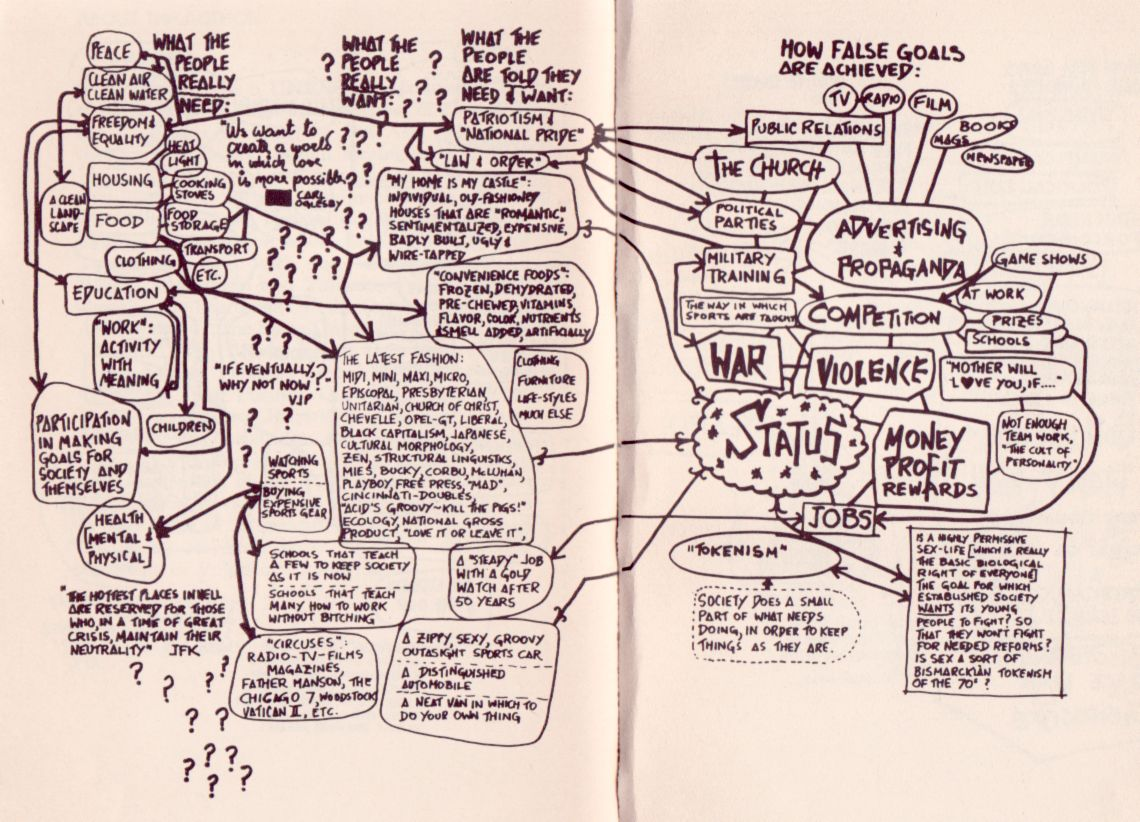 WHAT THE
PEOPLE
REALLY
NEED:
PEACE
CLEAN AIR
CLEAN WATER
FREEDOM &
EQUALITY
HEAT
LIGHT
HOUSING
COOKING
STOVES
A CLEAN
LAND-
SCAPE
FOOD
FOOD
STORAGE
CLOTHING
TRANSPORT
ETC.
EDUCATION
"WORK":
ACTIVITY
WITH
MEANING
PARTICIPATION
IN MAKING
GOALS FOR
SOCIETY AND
THEMSELVES
CHILDREN
HEALTH
[MENTAL &
PHYSICAL]
"THE HOTTEST PLACES IN HELL
ARE RESERVED FOR THOSE
WHO, IN A TIME OF GREAT
CRISIS, MAINTAIN THEIR
NEUTRALITY" JFK
WHAT THE
PEOPLE
REALLY
WANT:
"We want to
create a world
in which love
is more possible"
CARL
OGLESBY
"IF EVENTUALLY,
WHY NOT NOW?"
VJP
WHAT THE
PEOPLE
ARE TOLD THEY
NEED & WANT:
PATRIOTISM &
"NATIONAL PRIDE"
"LAW & ORDER"
"MY HOME IS MY CASTLE":
INDIVIDUAL, OLD-FASHIONEY
HOUSES THAT ARE "ROMANTIC",
SENTIMENTALIZED, EXPENSIVE,
BADLY BUILT, UGLY &
WIRE-TAPPED
"CONVENIENCE FOODS":
FROZEN, DEHYDRATED,
PRE-CHEWED, VITAMINS,
FLAVOR, COLOR, NUTRIENTS
& SMELL ADDED, ARTIFICIALLY
THE LATEST FASHION:
MIDI, MINI, MAXI, MICRO,
EPISCOPAL, PRESBYTERIAN,
UNITARIAN, CHURCH OF CHRIST,
CHEVELLE, OPEL-GT, LIBERAL,
BLACK CAPITALISM, JAPANESE,
CULTURAL MORPHOLOGY,
ZEN, STRUCTURAL LINGUISTICS,
MIES, BUCKY, CORBU, McLUHAN,
PLAYBOY, FREE PRESS, "MAD",
CINCINNATI-DOUBLES,
"ACID'S GROOVY~KILL THE PIGS!"
ECOLOGY, NATIONAL GROSS
PRODUCT, "LOVE IT OR LEAVE IT",
CLOTHING
FURNITURE
LIFE-STYLES
MUCH ELSE
WATCHING
SPORTS
BUYING
EXPENSIVE
SPORTS GEAR
SCHOOLS THAT TEACH
A FEW TO KEEP SOCIETY
AS IT IS NOW
SCHOOLS THAT TEACH
MANY HOW TO WORK
WITHOUT BITCHING
A "STEADY" JOB
WITH A GOLD
WATCH AFTER
50 YEARS
"CIRCUSES":
RADIO-TV-FILMS
MAGAZINES,
FATHER MANSON, THE
CHICAGO 7, WOODSTOCK
VATICAN II, ETC.
A ZIPPY, SEXY, GROOVY
OUTASIGHT SPORTS CAR
A DISTINGUISHED
AUTOMOBILE
A NEAT VAN IN WHICH TO
DO YOUR OWN THING
HOW FALSE GOALS
ARE ACHIEVED:
TV
RADIO
FILM
BOOKS
MAGS
NEWSPAPER
PUBLIC RELATIONS
THE CHURCH
POLITICAL
PARTIES
ADVERTISING
&
PROPAGANDA
MILITARY
TRAINING
GAME SHOWS
THE WAY IN WHICH
SPORTS ARE TAUGHT
COMPETITION
AT WORK
PRIZES
SCHOOLS
WAR
VIOLENCE
"MOTHER WILL
L♥VE YOU, IF...."
STATUS
MONEY
PROFIT
REWARDS
NOT ENOUGH
TEAM WORK,
"THE CULT OF
PERSONALITY"
JOBS
"TOKENISM"
SOCIETY DOES A SMALL
PART OF WHAT NEEDS
DOING, IN ORDER TO KEEP
THINGS AS THEY ARE.
IS A HIGHLY PERMISSIVE
SEX-LIFE [WHICH IS REALLY
THE BASIC BIOLOGICAL
RIGHT OF EVERYONE]
THE GOAL FOR WHICH
ESTABLISHED SOCIETY
WANTS ITS YOUNG
PEOPLE TO FIGHT? SO
THAT THEY WON'T FIGHT
FOR NEEDED REFORMS?
IS SEX A SORT OF
BISMARCKIAN TOKENISM
OF THE 70s?